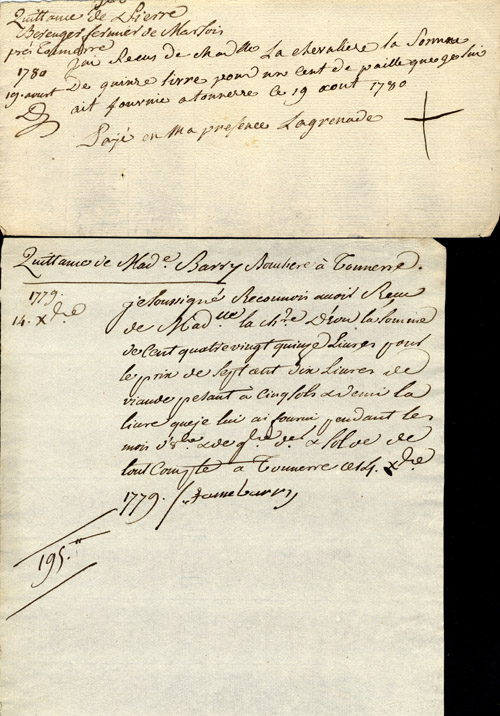 Quittance de Pierre
Berenger fermier de Marsois
pré Tonnerre
1780
19. aout
j'ai Receus de Madlle La chevaliere la Somme
De quinze livre pour un cent de paille que je lui
ait fournie a tonnerre ce 19 aout 1780
Payé en ma presence Lagrenade
Quittance de Made. Barry Bouchere à Tonnerre.
1779.
14. Xbre
je Soussigné Reconnois avoir Recu
de Madlle la Chre Déon la Somme
de Cent quatre vingt quinze Livres pour
le prix de Sept cent dix Livres de
viande pesant à Cinq Sols & demi la
livre que je lui ai fourni pendant les
mois d'8bre & de 9bre der & Solde de
tout Compte à Tonnerre ce 14. Xbre
1779. fame barry
195.tt